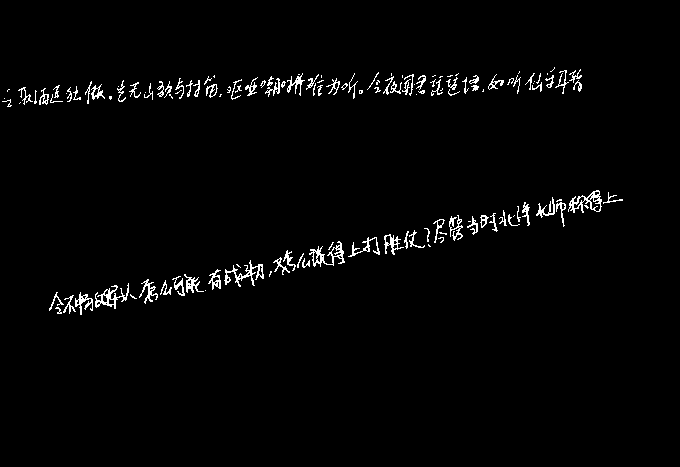 取酒还独倾。岂无山歌与村笛,呕哑嘲哳难为听。今夜闻君琵琶语,如听仙乐耳暂
令不畅的军队怎么可能有战斗力,又怎么谈得上打胜仗?尽管当时北洋水师称得上